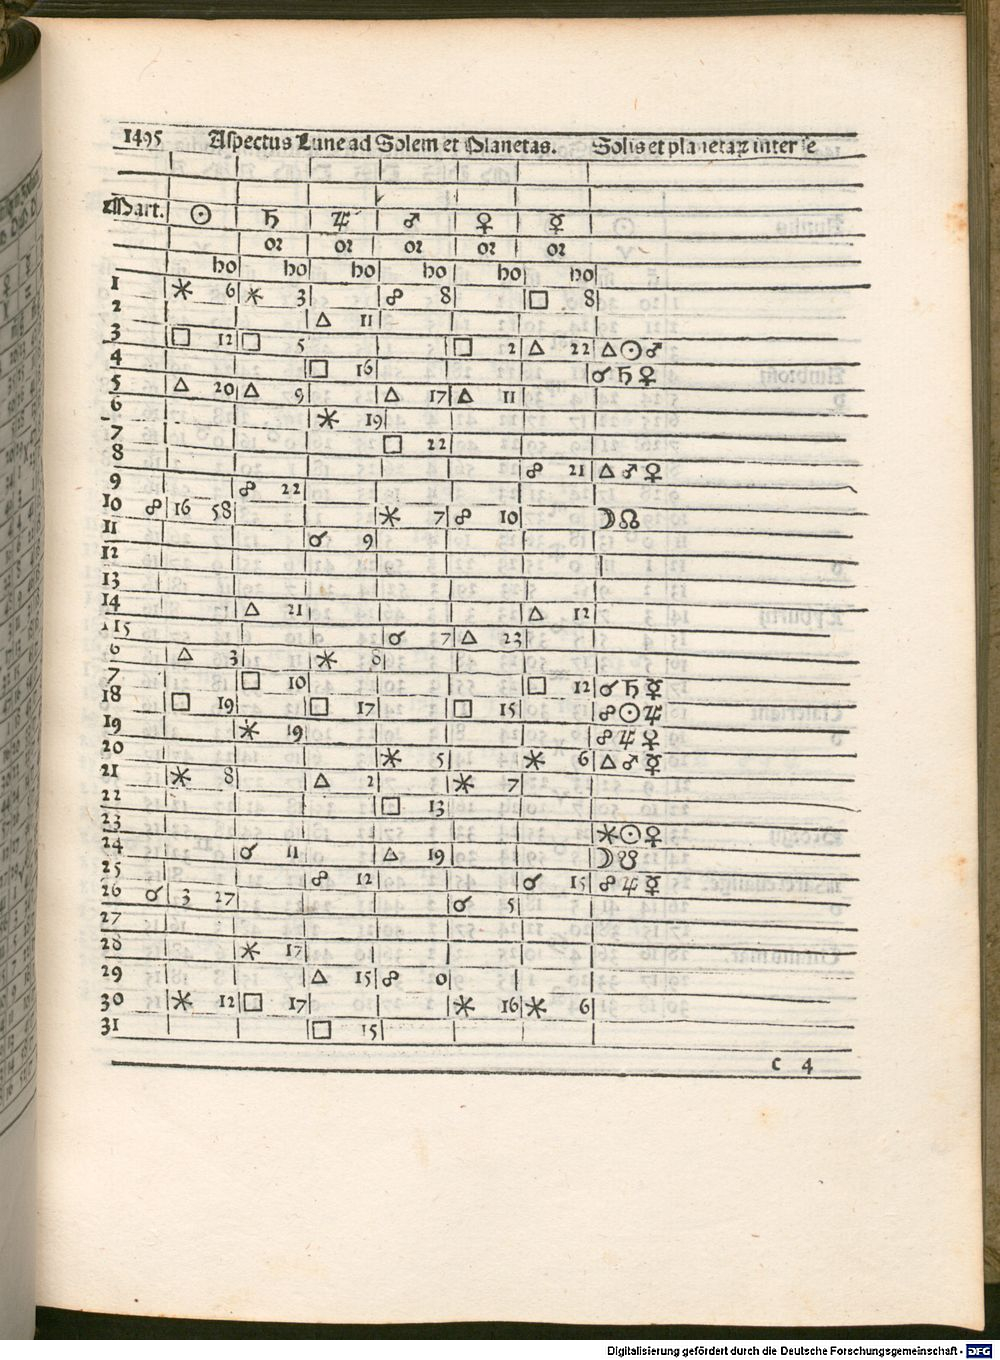 1495 Aspectus Lune ad Solem et Planetas. Solis et planetaꝝ inter se
Mart. ☉ ♄ ♃ ♂ ♀ ☿
oꝛ oꝛ oꝛ oꝛ oꝛ
ho ho ho ho ho ho
1 ⚹ 6 ⚹ 3 ☍ 8 □ 8
2 △ 11
3 □ 12 □ 5 □ 2 △ 22 △ ☉ ♂
4 □ 16 ☌ ♄ ♀
5 △ 20 △ 9 △ 17 △ 11
6 ⚹ 19
7 □ 22
8 ☍ 21 △ ♂ ♀
9 ☍ 22
10 ☍ 16 58 ⚹ 7 ☍ 10 ☽ ☊
11 ☌ 9
12
13
14 △ 21 △ 12
15 ☌ 7 △ 23
6 △ 3 ⚹ 8
7 □ 10 □ 12 ☌ ♄ ☿
18 □ 19 □ 17 □ 15 ☍ ☉ ♃
19 ⚹ 19 ☍ ♃ ♀
20 ⚹ 5 ⚹ 6 △ ♂ ☿
21 ⚹ 8 △ 2 ⚹ 7
22 □ 13
23 ⚹ ☉ ♀
24 ☌ 11 △ 19 ☽ ☋
25 ☍ 12 ☌ 15 ☍ ♃ ☿
26 ☌ 3 27 ☌ 5
27
28 ⚹ 17
29 △ 15 ☍ 0
30 ⚹ 12 □ 17 ⚹ 16 ⚹ 6
31 □ 15
c 4
Digitalisierung gefördert durch die Deutsche Forschungsgemeinschaft - DFG